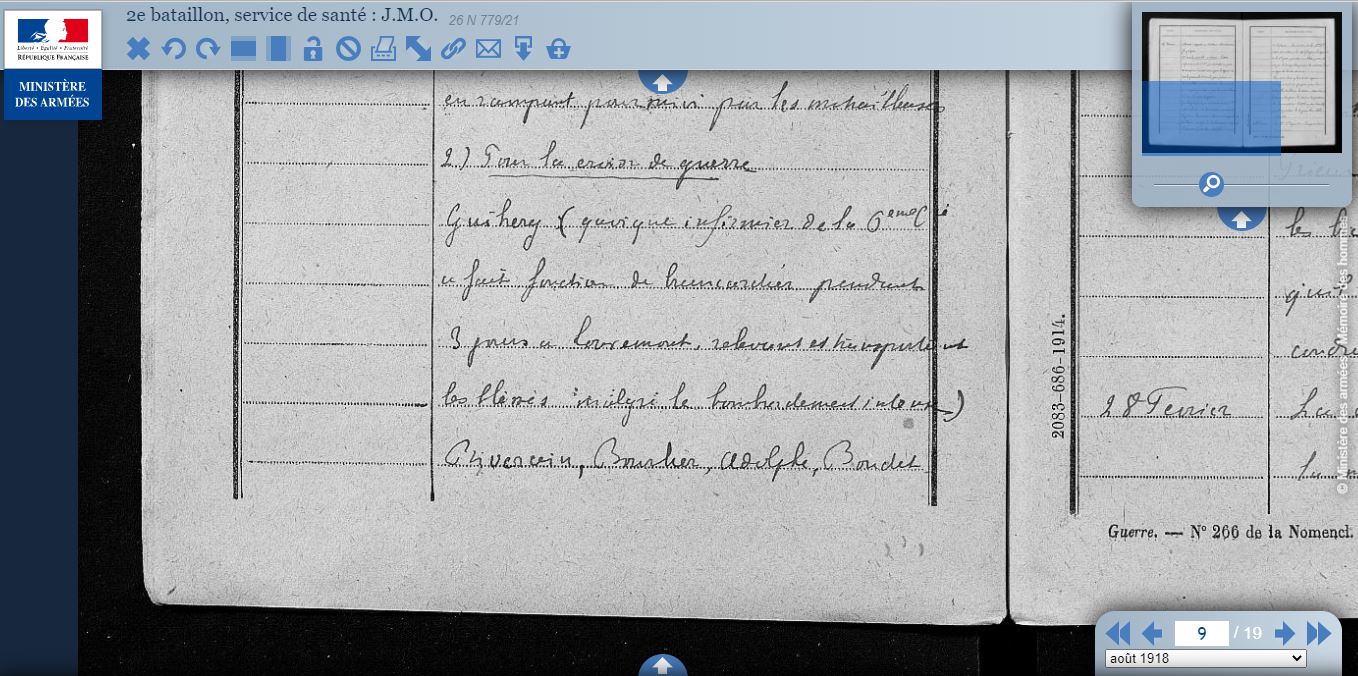 2e bataillon, service de santé : J.M.O. 26 N 779/21
Liberté • Égalité • Fraternité
RÉPUBLIQUE FRANÇAISE
MINISTÈRE
DES ARMÉES
en rampant poursuivi par les mitrailleuses
2) Pour la croix de guerre
Guihery (quoique infirmier de la 6eme Cie
a fait fonction de brancardier pendant
3 jours a Louvemont, relevant et transportant
les blessés malgré le bombardement intense)
Bourlier, Adolphe, Boudet
les
28 Fevrier
2083-686-1914.
Guerre. — N° 266 de la Nomencl.
© Ministère des armées - Mémoire des hommes
9 / 19
août 1918